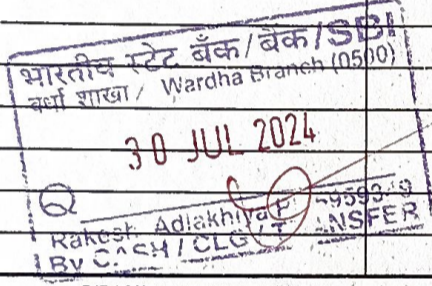 भारतीय स्टेट बैँक/बैंक/SBI
वर्धा शाखा / Wardha Branch (0500)
30 JUL 2024
Rakesh Adlakhiya
By CASH / CLG / TRANSFER